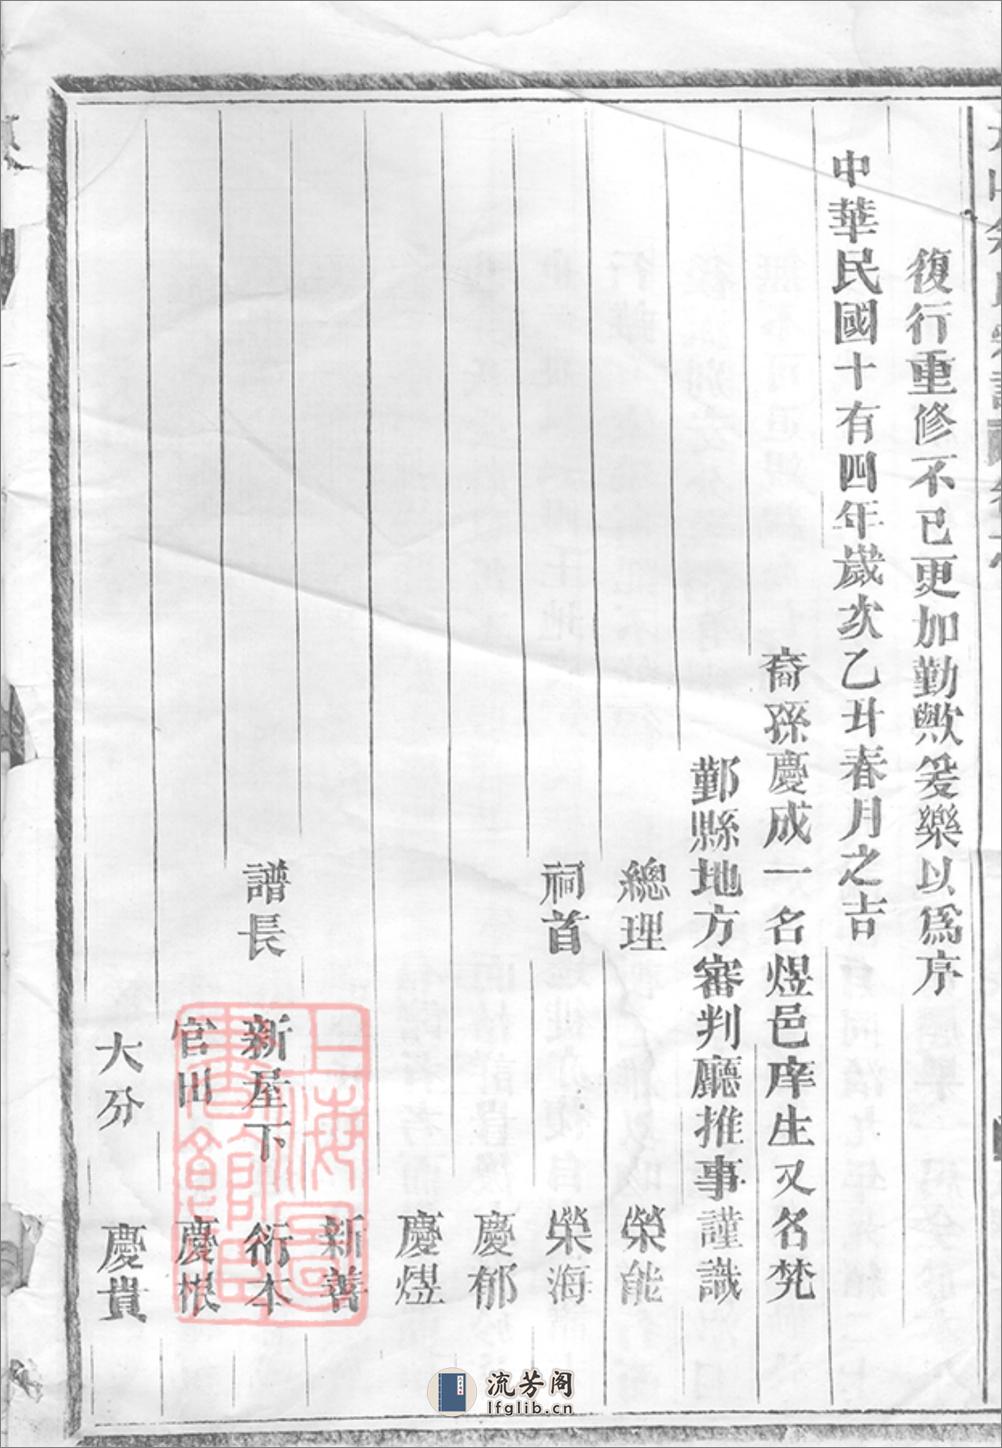 復行重修不已更加勤歟爰樂以爲序
中華民國十有四年歲次乙丑春月之吉
裔孫慶成一名煜邑庠生又名梵
鄞縣地方審判廳推事謹識
總理 榮能
祠首 榮海
慶郁
慶煜
新善
譜長 新屋下 衍本
官田 慶根
大分 慶貴
上海圖書館藏
流芳阁
lfglib.cn